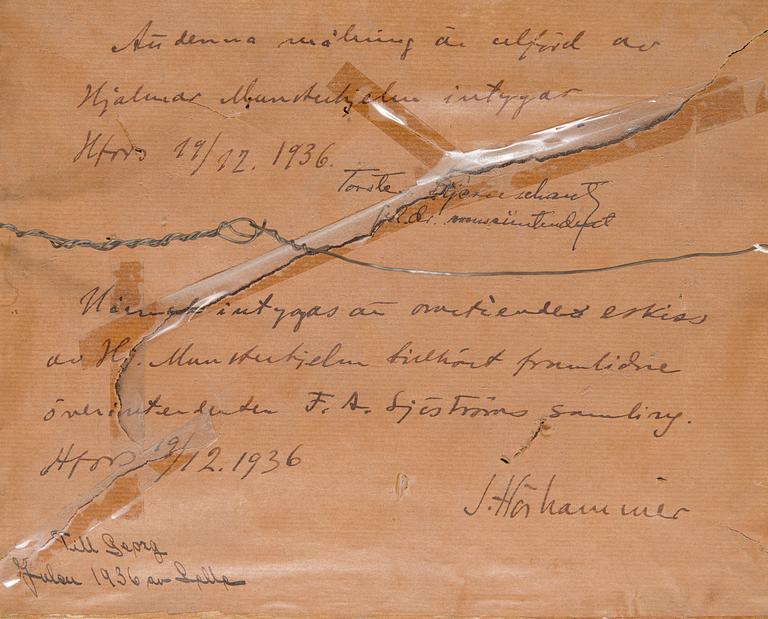 Att denna målning är utförd av
Hjalmar Munsterhjelm intygar
Hfors 19/12. 1936.
Torsten Stjernschantz
f.d. museiintendent
Härmed intygas att omstående eskiss
av Hj. Munsterhjelm tillhört framlidne
överintendenten F. A. Sjöströms samling.
Hfors 19/12.1936
J. Hörhammer
Till Georg
Julen 1936 av